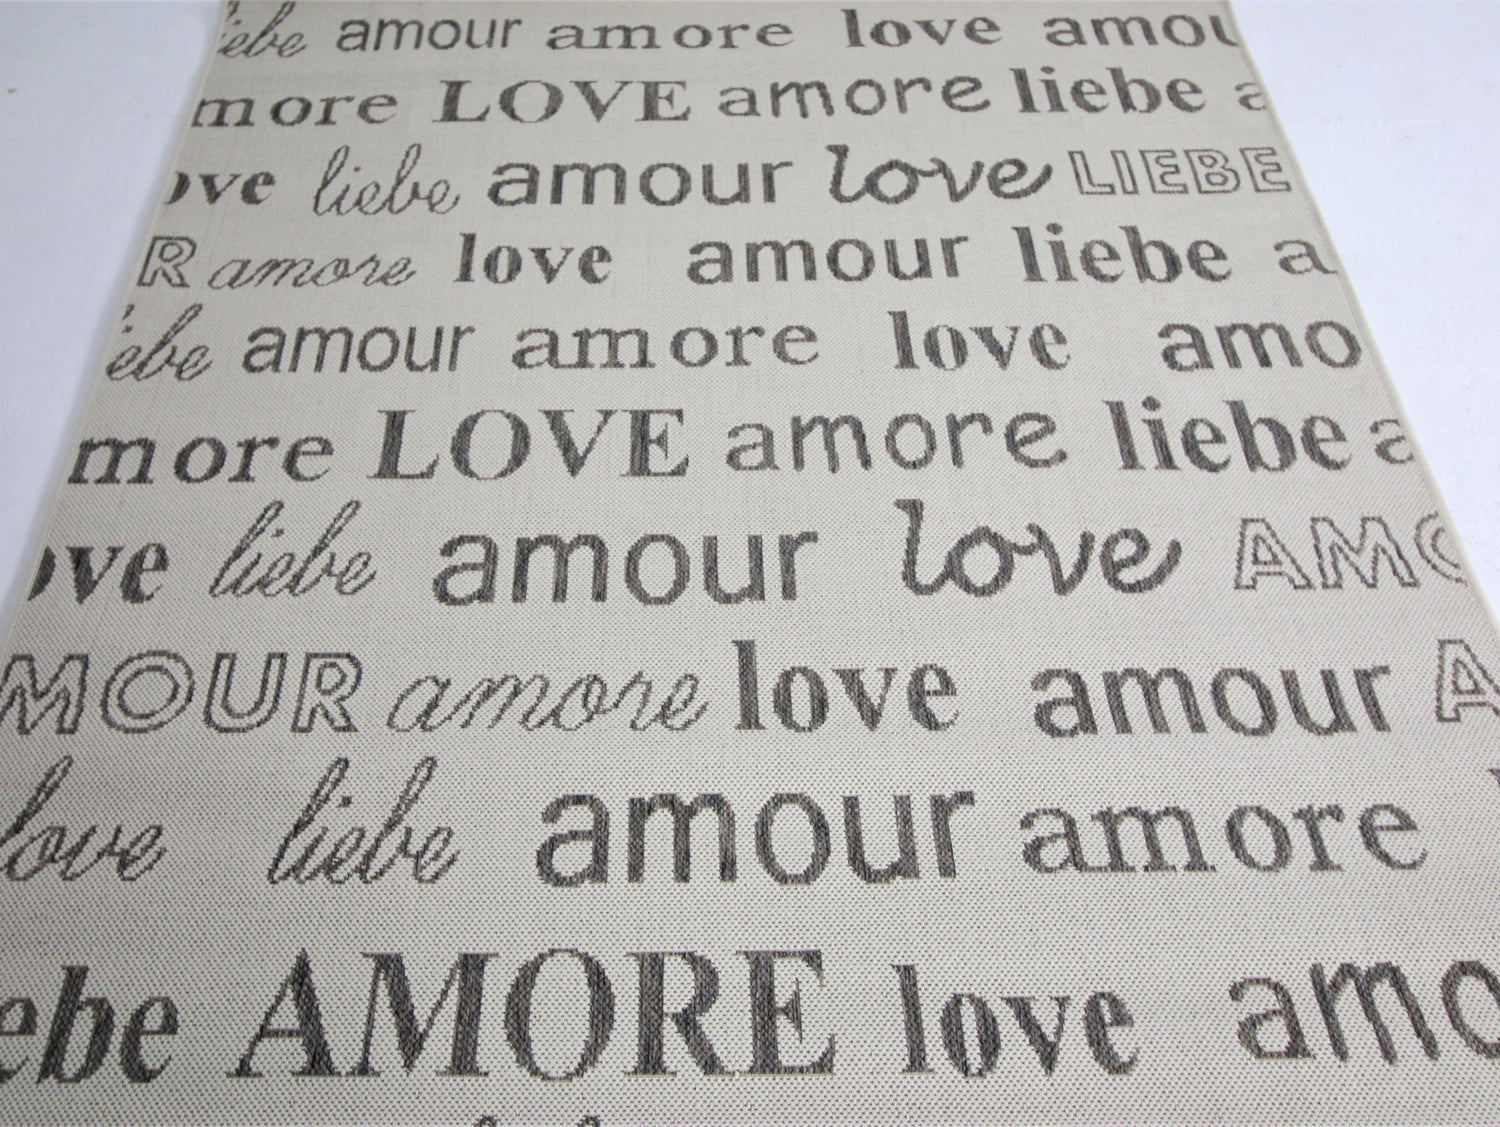 iebe amour amore love amou
more LOVE amore liebe a
ove liebe amour love LIEBE
R amore love amour liebe a
ebe amour amore love amo
more LOVE amore liebe a
ove liebe amour love AMO
MOUR amore love amour A
love liebe amour amore
ebe AMORE love amo